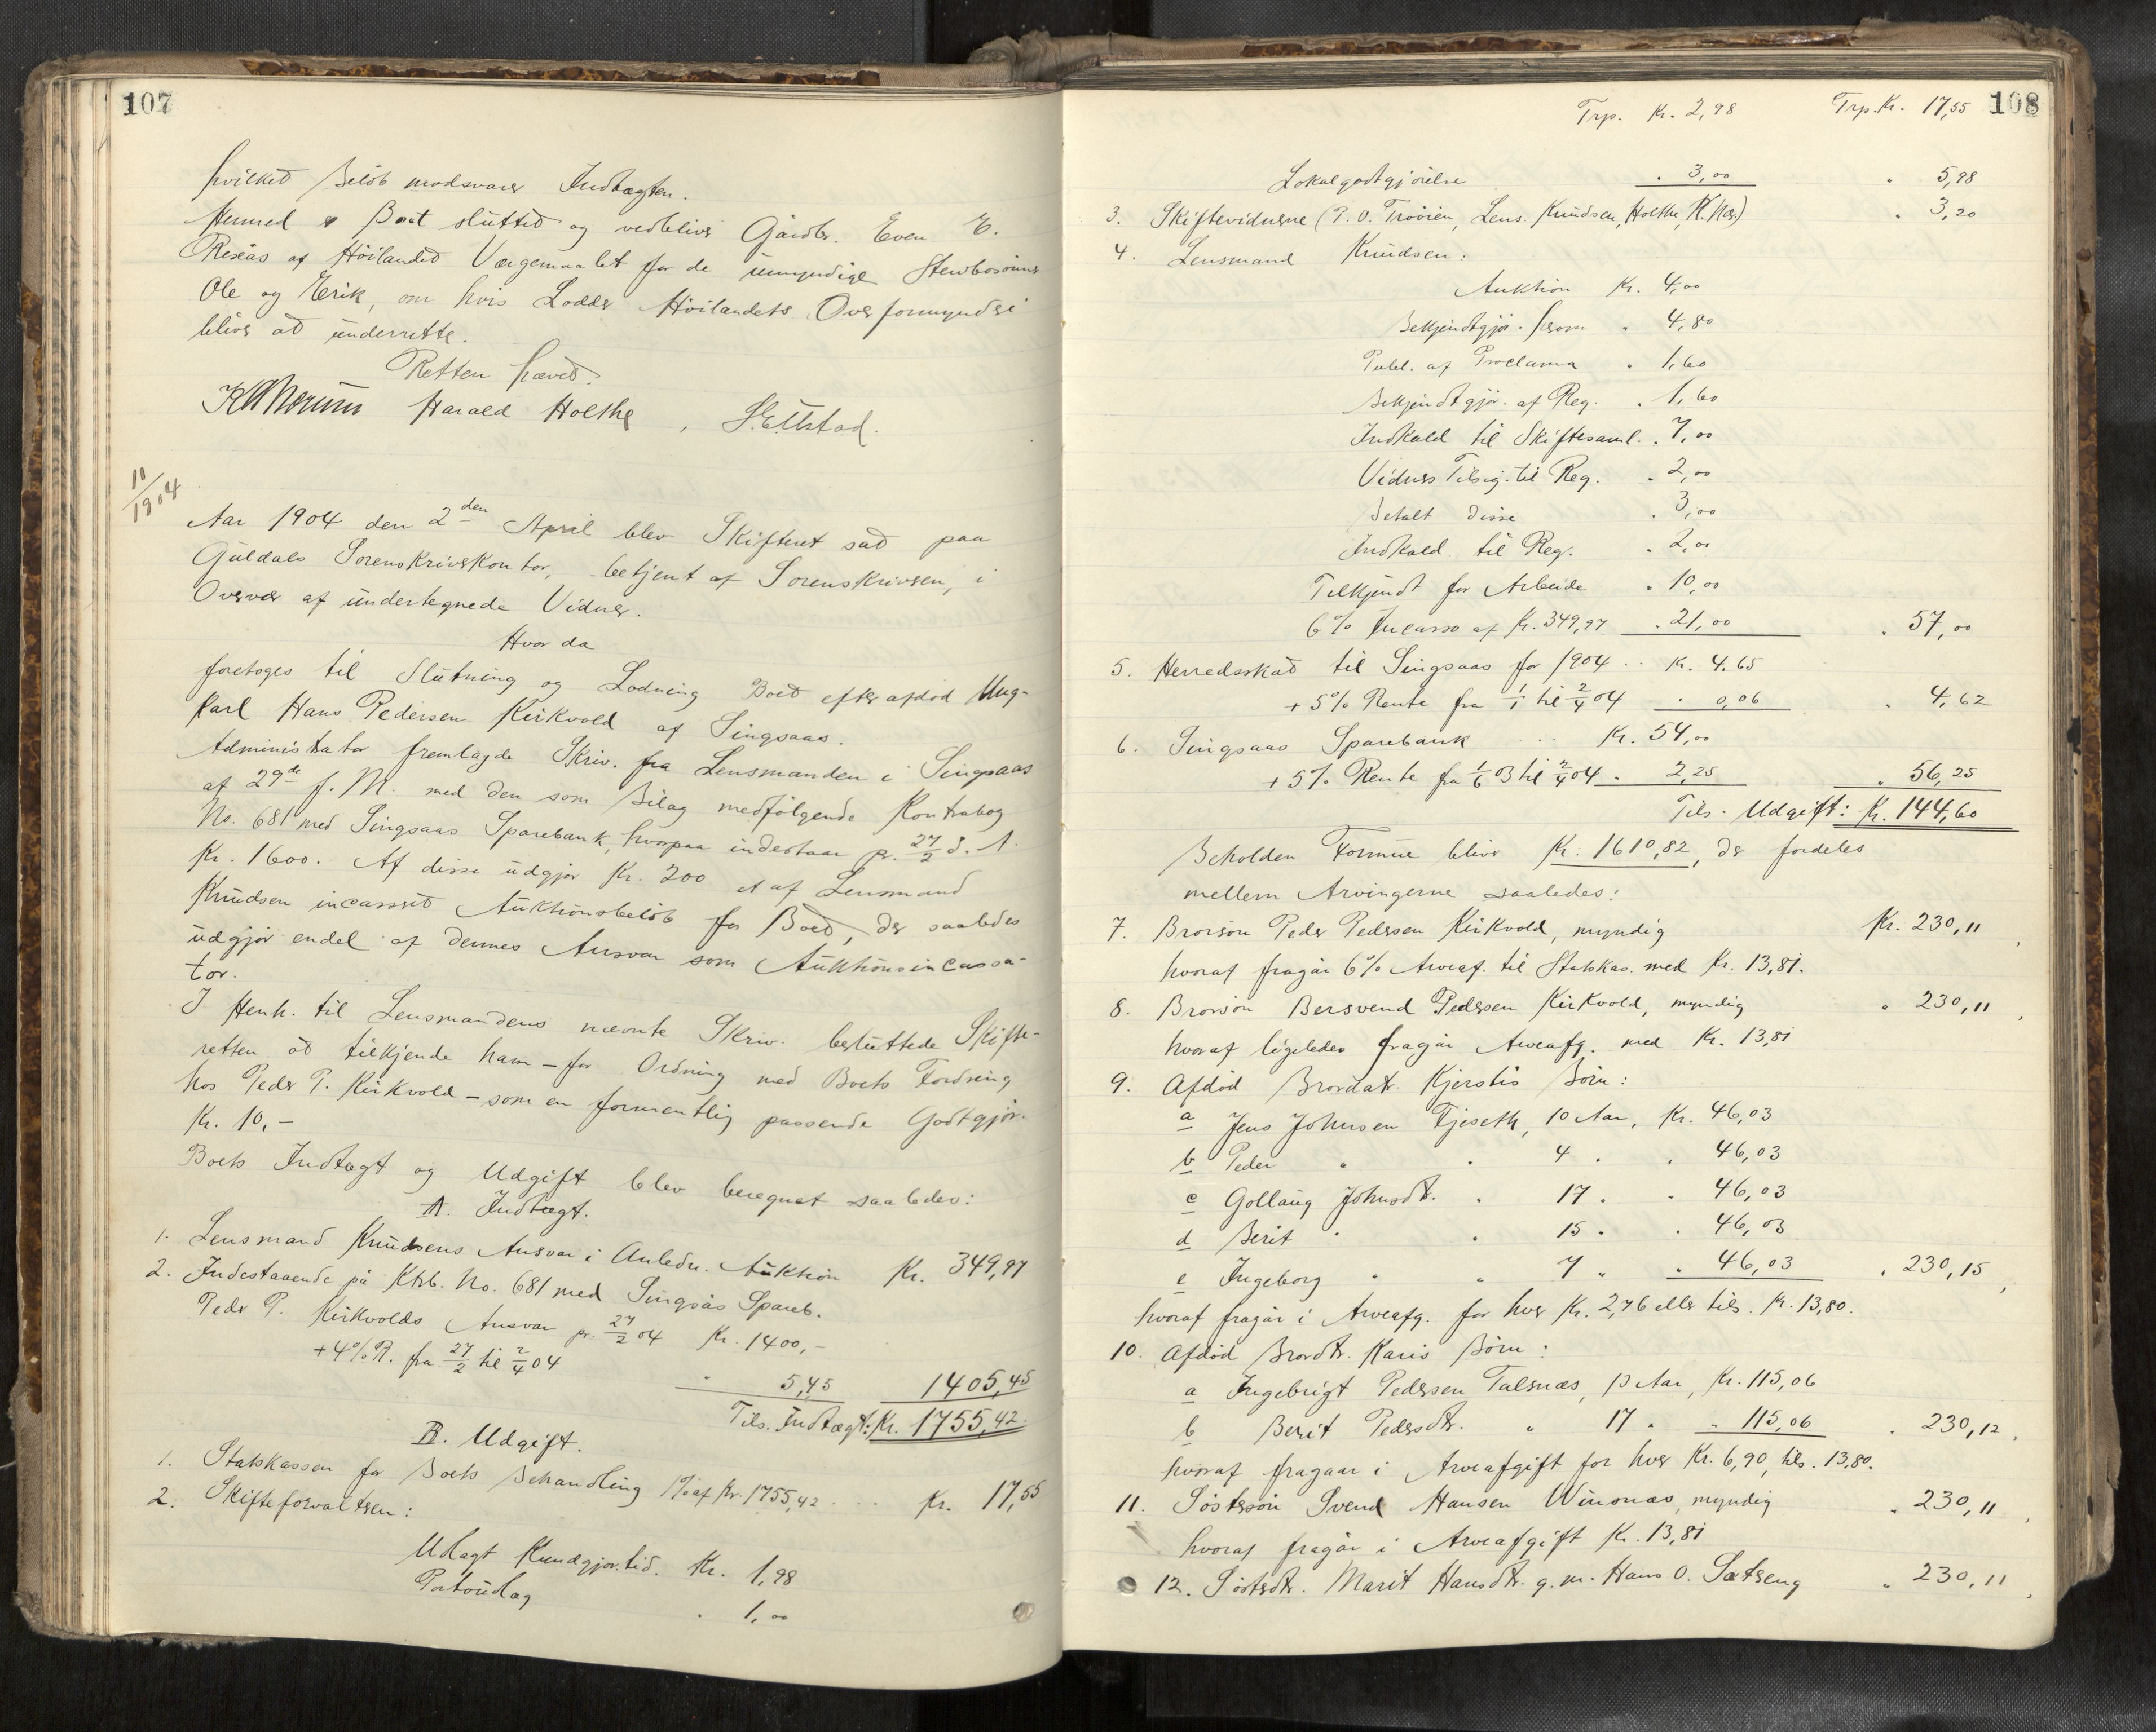 107
hvilket Beløb modsvarer Indtægten.
Hermed er Boet sluttet og vedbliver Gårdbr. Even E.
Reseås af Höilandet Værgemaalet for de umyndige Stervbosönner
Ole og Erik, om hvis Lodder Höilandets Overformynderi
bliver at underrette.
Retten hævet.
Harald Holthe, S. Ellstad.
11/1904
Aar 1904 den 2den April blev Skifteret sat paa
Guldals Sorenskriverkontor, betjent af Sorenskriveren, i
Overvær af undertegnede Vidner.
Hvor da
foretoges til Slutning og Lodning Boet efter afdöd Ung-
karl Hans Pedersen Kirkvold af Singsaas.
Administrator fremlagde Skriv. fra Lensmanden i Singsaas
af 29de f. M. med den som Bilag medfölgende Kontrabog
No. 681 med Singsaas Sparebank, hvorpaa indestaar pr. 27/2 d. A.
Kr. 1600. Af disse udgjør Kr. 200 et af Lensmand
Knudsen incasseret Auktionsbelöb for Boet, der saaledes
udgjør endel af dennes Ansvar som Auktionsincassa-
tor.
I Henh. til Lensmandens nævnte Skriv. besluttede Skifte-
retten at tilkjende ham – for Ordning med Boets Fordring
hos Peder P. Kirkvold – som en formentlig passende Godtgjör.
Kr. 10,-
Boets Indtægt og Udgift blev beregnet saaledes:
A. Indtægt.
1. Lensmand Knudsens Ansvar i Anledn. Auktion Kr. 349,97
2. Indestaaende på Ktrb. No. 681 med Singsås Spareb.
Peder P. Kirkvolds Ansvar pr. 27/2 04 Kr. 1400,-
+ 4% R. fra 27/2 til 2/4 04 " 5,45 1405,45
Tils. Indtægt: Kr. 1755,42.
B. Udgift.
1. Statskassen for Boets Behandling 1% af Kr. 1755,42 . . . Kr. 17,55
2. Skifteforvalteren:
Udlagt Kundgjør. tid. Kr. 1,98
Portoudlæg " 1,00
108
Trp. Kr. 2,98 Trp. Kr. 17,55
Lokalgodtgjörelse " 3,00 " 5,98
3. Skiftevidnerne (P. O. Trööien, Lens. Knudsen, Holthe, K. Næs) " 3,20
4. Lensmand Knudsen:
Auktion Kr. 4,00
Bekjendtgjör. herom " 4,80
Publ. af Proclama " 1,60
Bekjendtgjör. af Reg. " 1,60
Indkald til Skiftesaml. " 7,00
Vidners Tilsig. til Reg. " 2,00
Betalt disse " 3,00
Indkald. til Reg. " 2,00
Tilkjendt for Arbeide " 10,00
6% Incasso af Kr. 349,97 " 21,00 " 57,00
5. Herredsskat til Singsaas for 1904 . . Kr. 4.65
+ 5% Rente fra 1/1 til 2/4 04 " 0,06 " 4,62
6. Singsaas Sparebank . . . Kr. 54,00
+ 5% Rente fra 1/6 03 til 2/4 04 " 2,25 " 56,25
Tils. Udgift: Kr. 144,60
Beholden Formue bliver Kr. 1610,82, der fordeles
mellem Arvingerne saaledes:
7. Brorsön Peder Pedersen Kirkvold, myndig Kr. 230,11
hvoraf fragår 6% Arveaf. til Statskas. med Kr. 13,81.
8. Brorsön Bersvend Pedersen Kirkvold, myndig " 230,11
hvoraf ligeledes fragår Arveafg. med Kr. 13,81
9. Afdöd Brordatr. Kjerstis Börn:
a Jens Johnsen Fjeseth, 10 Aar, Kr. 46,03
b Peder " " 4 " " 46,03
c Gollaug Johnsdtr. " 17 " " 46,03
d Berit " " 15 " " 46,03
e Ingeborg " " 7 " " 46,03 " 230,15
hvoraf fragår i Arveafg. for hver Kr. 2,76 eller tils. Kr. 13,80.
10. Afdöd Brordtr. Karis Börn:
a Ingebrigt Pedersen Talsnæs, 13 Aar, Kr. 115,06
b Berit Pedersdtr. " 17 " " 115,06 " 230,12
hvoraf fragaar i Arveafgift for hver Kr. 6,90, tils. 13,80.
11. Söstersön Svend Hansen Winsnæs, myndig " 230,11
hvoraf fragår i Arveafgift Kr. 13,81
12. Sösterdtr. Marit Hansdtr. g. m. Hans O. Sætreng " 230,11